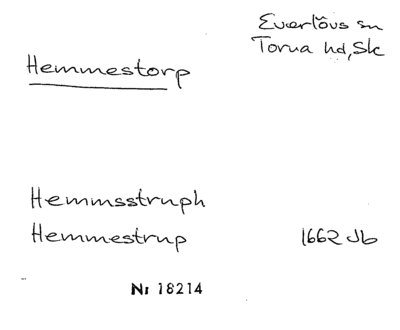 Everlövs sn
Torna hd, Sk
Hemmestorp
Hemmsstruph
Hemmestrup 1662 Jb
Nr 18214